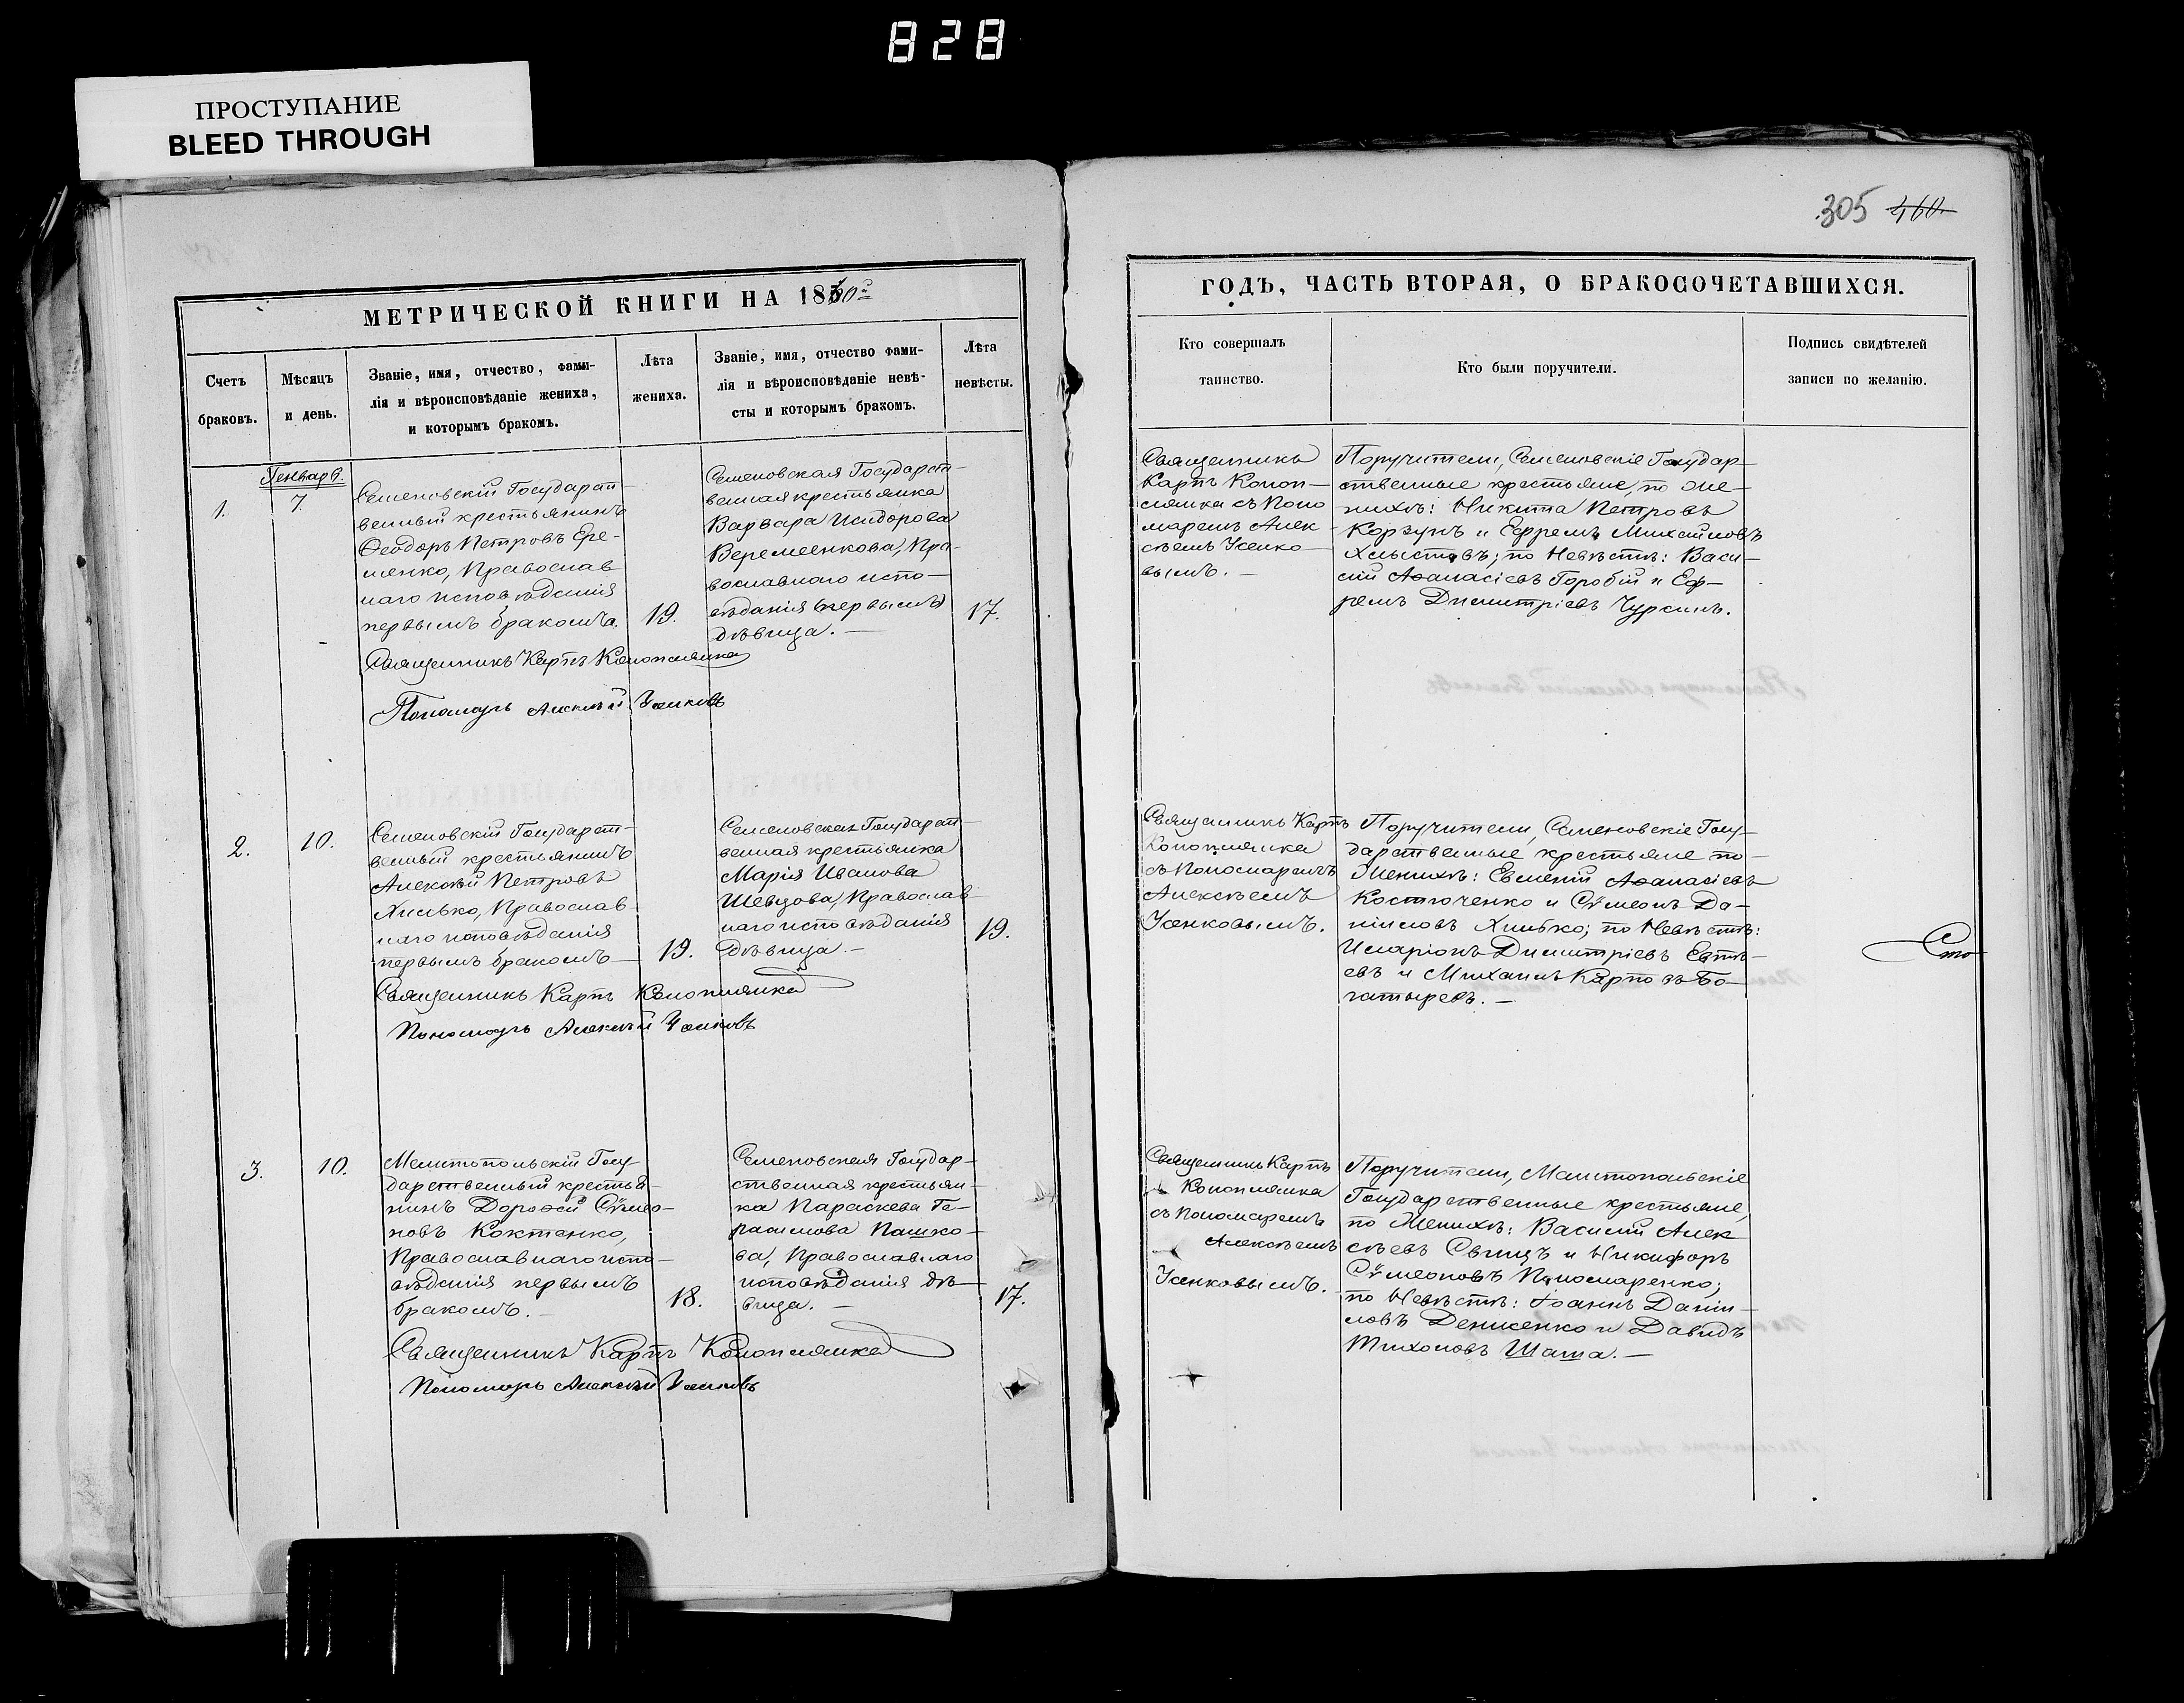 828
ПРОСТУПАНИЕ
BLEED THROUGH
305 460.
МЕТРИЧЕСКОЙ КНИГИ НА 1860й
Счетъ
браковъ.
Мѣсяцъ
и день.
Званіе, имя, отчество, фами-
лія и вѣроисповѣданіе жениха,
и которымъ бракомъ.
Лѣта
жениха.
Званіе, имя, отчество фами-
лія и вѣроисповѣданіе невѣ-
сты и которымъ бракомъ.
Лѣта
невѣсты.
Генварь.
1.
7.
Семеновскій Государст-
венный крестьянинъ
Ѳеодоръ Петровъ Ере-
менко, Православ
наго исповѣданія
первымъ бракомъ.
19.
Семеновская Государст-
венная крестьянка
Варвара Исидорова
Веремеенкова, Пра-
вославнаго испо-
вѣданія первымъ
дѣвица. —
17.
Священникъ Карпъ Коноплянка
Пономарь Алексѣй Усенковъ
2.
10.
Семеновскій Государст-
венный крестьянинъ
Алексѣй Петровъ
Хилько, Православ
наго исповѣданія
первымъ бракомъ —
19.
Семеновская Государст-
венная крестьянка
Марія Иванова
Шевцова, Православ-
наго исповѣданія
дѣвица. —
19.
Священникъ Карпъ Коноплянка
Пономарь Алексѣй Усенковъ
3.
10.
Мелитопольскій Госу-
дарственный крестья-
нинъ Дороѳей Сѵмео-
новъ Коктенко,
Православнаго испо-
вѣданія первымъ
бракомъ. —
18.
Семеновская Государ-
ственная крестьян-
ка Параскева Ге-
расимова Пашко-
ва, Православнаго
исповѣданія дѣ-
вица. —
17.
Священникъ Карпъ Коноплянка
Пономарь Алексѣй Усенковъ
ГОДЪ, ЧАСТЬ ВТОРАЯ, О БРАКОСОЧЕТАВШИХСЯ.
Кто совершалъ
таинство.
Кто были поручители.
Подпись свидѣтелей
записи по желанію.
Священникъ
Карпъ Коноп-
лянка съ Поно
маремъ Алек
сѣемъ Усенко-
вымъ. —
Поручители, Семеновскіе Государ-
ственные крестьяне, по Же-
нихѣ: Никита Петровъ
Корзунъ и Ефремъ Михайловъ
Хлыстовъ; по Невѣстѣ: Васи-
лій Аѳанасіевъ Горобій и Еф-
ремъ Димитріевъ Чурсинъ.
Священникъ Карпъ
Коноплянка
съ Пономаремъ
Алексѣемъ
Усенковымъ.
Поручители, Семеновскіе Госу-
дарственные крестьяне по-
Женихѣ: Евменій Аѳанасіевъ
Костюченко и Сѵмеонъ Да-
ніиловъ Хилько; по Невѣстѣ:
Иларіонъ Димитріевъ Евтѣ-
евъ и Михаилъ Карповъ Бо-
гатыревъ. —
Сто
Священникъ Карпъ
Коноплянка
съ Пономаремъ
Алексѣемъ
Усенковымъ.
Поручители, Мелитопольскіе
Государственные крестьяне,
по Женихѣ: Василій Алек
сѣевъ Свинцъ и Никифоръ
Сѵмеоновъ Пономаренко;
по Невѣстѣ: Іоаннъ Даніи-
ловъ Денисенко и Давидъ
Тихоновъ Шаша. —